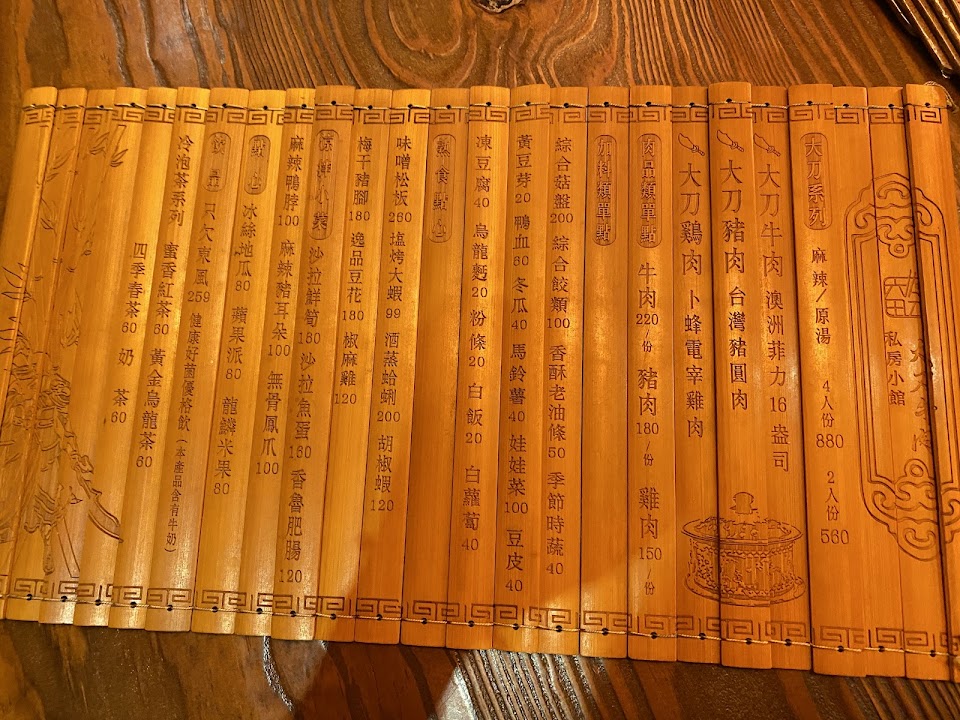 私房小館
大刀系列
麻辣/原湯 4人份 880 2人份 560
大刀牛肉 澳洲菲力16盎司
大刀豬肉 台灣豬圓肉
大刀鷄肉 卜蜂電宰雞肉
肉品類單點
牛肉220/份 豬肉180/份 雞肉150/份
加料類單點
綜合菇盤200 綜合餃類100 香酥老油條50 季節時蔬40
黃豆芽20 鴨血60 冬瓜40 馬鈴薯40 娃娃菜100 豆皮40
凍豆腐40 烏龍麵20 粉條20 白飯20 白蘿蔔40
熱食點心
味噌松板260 塩烤大蝦99 酒蒸蛤蜊200 胡椒蝦120
梅干豬腳180 逸品豆花180 椒麻雞120
涼拌小菜
麻辣鴨脖100 麻辣豬耳朵100 無骨鳳爪100
沙拉鮮筍180 沙拉魚蛋160 香魯肥腸120
點心
冰絲地瓜80 蘋果派80 龍鱗米果80
飲品
只欠東風259 健康好菌優格飲(本產品含有牛奶)
冷泡茶系列
蜜香紅茶60 黃金烏龍茶60
四季春茶60 奶茶60